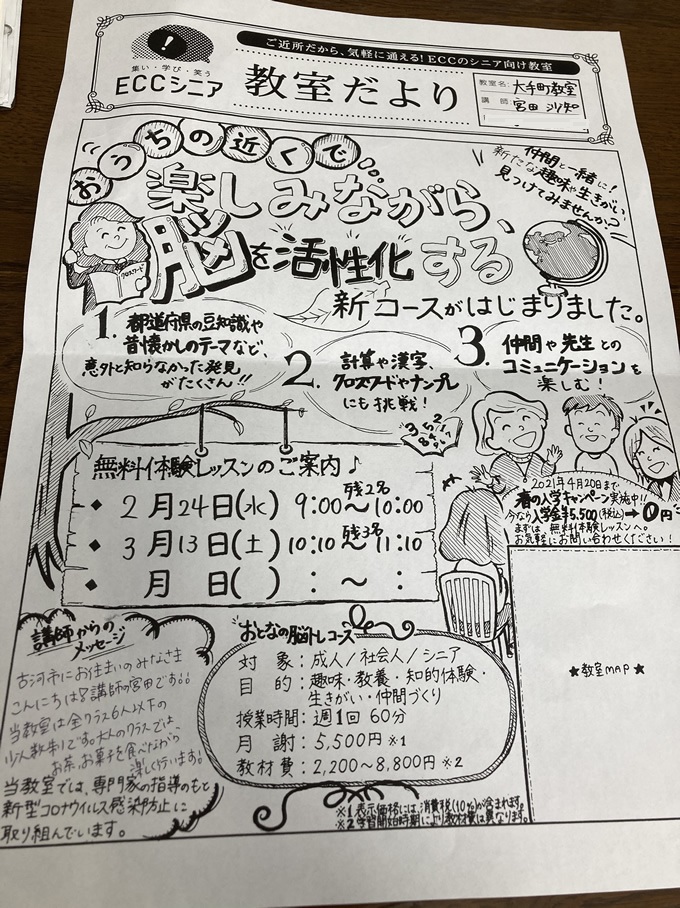 ご近所だから、気軽に通える!ECCのシニア向け教室
集い・学び・笑う
ECCシニア
教室だより
教室名: 大手町教室
講師: 宮田
おうちの近くで
楽しみながら、
脳を活性化する
新コースがはじまりました。
仲間と一緒に!
新たな趣味や生きがい、
見つけてみませんか?
クロスワード
1. 都道府県の豆知識や
昔懐かしのテーマなど、
意外と知らなかった発見
がたくさん!!
2. 計算や漢字、
クロスワードやナンプレ
にも挑戦!
3. 仲間や先生との
コミュニケーションを
楽しむ!
無料体験レッスンのご案内♪
◆ 2月24日(水) 9:00~10:00 残2名
◆ 3月13日(土) 10:10~11:10 残3名
◆ 月 日( ) : ~ :
2021年4月20日まで
春の入学キャンペーン実施中!!
今なら入学金¥5,500(税込)→0円
まずは 無料体験レッスンへ。
お気軽にお問い合わせください!
★教室MAP★
講師からの
メッセージ
古河市にお住まいのみなさま
こんにちは 講師の宮田です
当教室は全クラス6人以下の
少人数制です。大人のクラスでは、
お茶、お菓子を食べながら
楽しく行います!
当教室では、専門家の指導のもと
新型コロナウイルス感染防止に
取り組んでいます。
おとなの脳トレコース
対象:成人/社会人/シニア
目的:趣味・教養・知的体験・
生きがい・仲間づくり
授業時間:週1回 60分
月謝:5,500円 ※1
教材費:2,200~8,800円 ※2
※1 表示価格には、消費税(10%)が含まれます。
※2 学習開始時期により教材費は異なります。